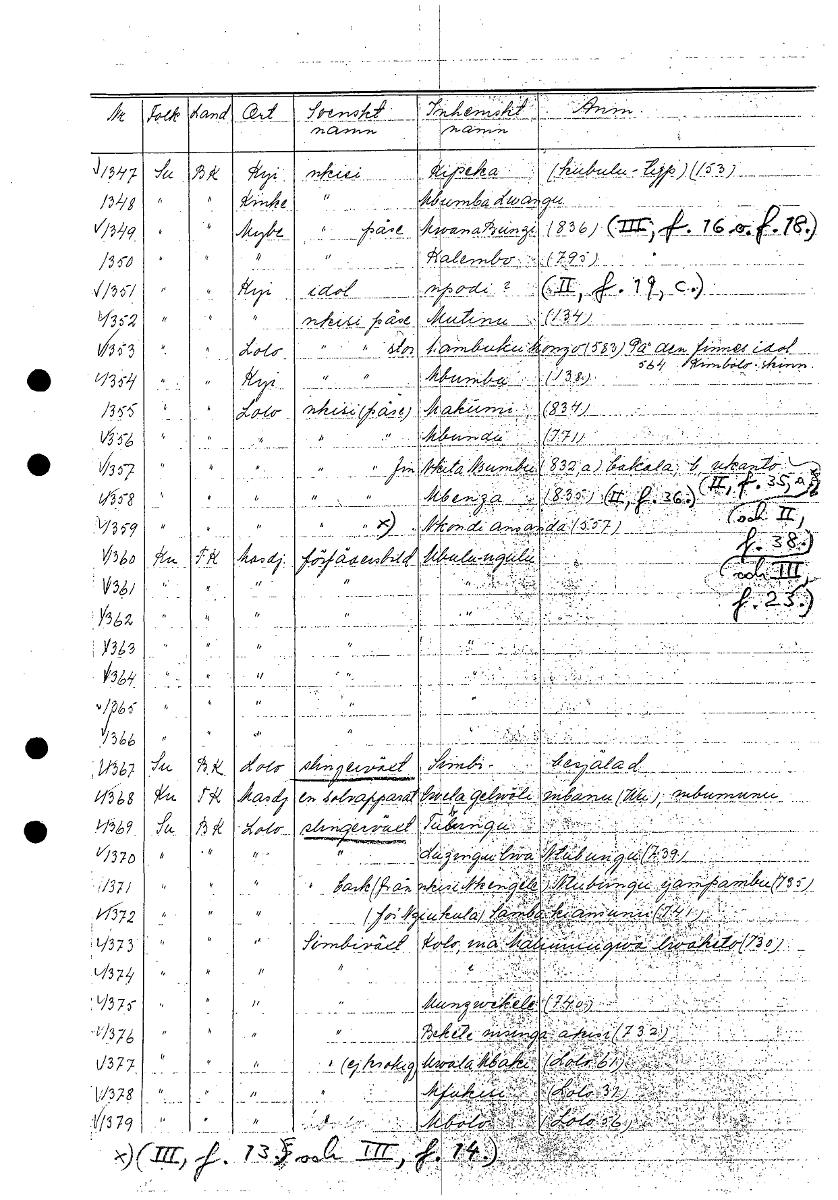 Nr Folk Land Ort Svenskt namn Inhemskt namn Anm
√1347 Su BK Kyi nkisi Kipeka (kubulu-typ) (153)
1348 " " Kinke " Mbumba Lwangu
√1349 " " Muybe " påse Mwana Bungi (836) (III, f. 16 o. f. 18.)
1350 " " " " Kalembo (795)
√1351 " " Kyi idol npodi? (II, f. 19, c.)
√1352 " " " nkisi påse Mutinu (134)
√1353 " " Lolo " " stor Lambuku kongo (583) På den finnes idol
564 Kimbolo-skinn
√1354 " " Kyi " " Mbumba (138)
1355 " " Lolo nkisi (påse) Makumi (834)
√1356 " " " " " Mbundu (771)
√1357 " " " " " fm Nkita Bumba (832,a) bakala, b nkanto (II, f. 35, A,
√1358 " " " " " Mbenza (835) (II, f. 36.) (och II,
√1359 " " " " " x) Nkondi Ansanda (557) f. 38.)
√1360 Ku FK Masdj förfäsersbild Mbulu-ngulu (och III,
√1361 " " " " " f. 23.)
√1362 " " " " "
√1363 " " " " "
√1364 " " " " "
√1365 " " " " "
√1366 " " " " "
√1367 Su BK Lolo slingerväxt Simbi- besjälad
√1368 Ku FK Masdj en solvapparat mbanu (Mu), mbumunu
√1369 Su BK Lolo slingerväxt Tubungu
√1370 " " " " Luzingu lwa Mubungu (739)
√1371 " " " " bark (från nkisi Nkengele) Mubungu yampambu (735)
√1372 " " " (för Ngukula) Samba kiamunu (741)
√1373 " " " Simbiväxt Kolo, ma lwaketo (730)
√1374 " " " " "
√1375 " " " " Munzwekele (740)
√1376 " " " " Bikete nsinga akisi (732)
√1377 " " " " (ej krokig) Mwala Mbaki (Lolo 61)
√1378 " " " " Mfuku (Lolo 37)
√1379 " " " " Mbolo (Lolo 56)
x) (III, f. 13. och III, f. 14.)